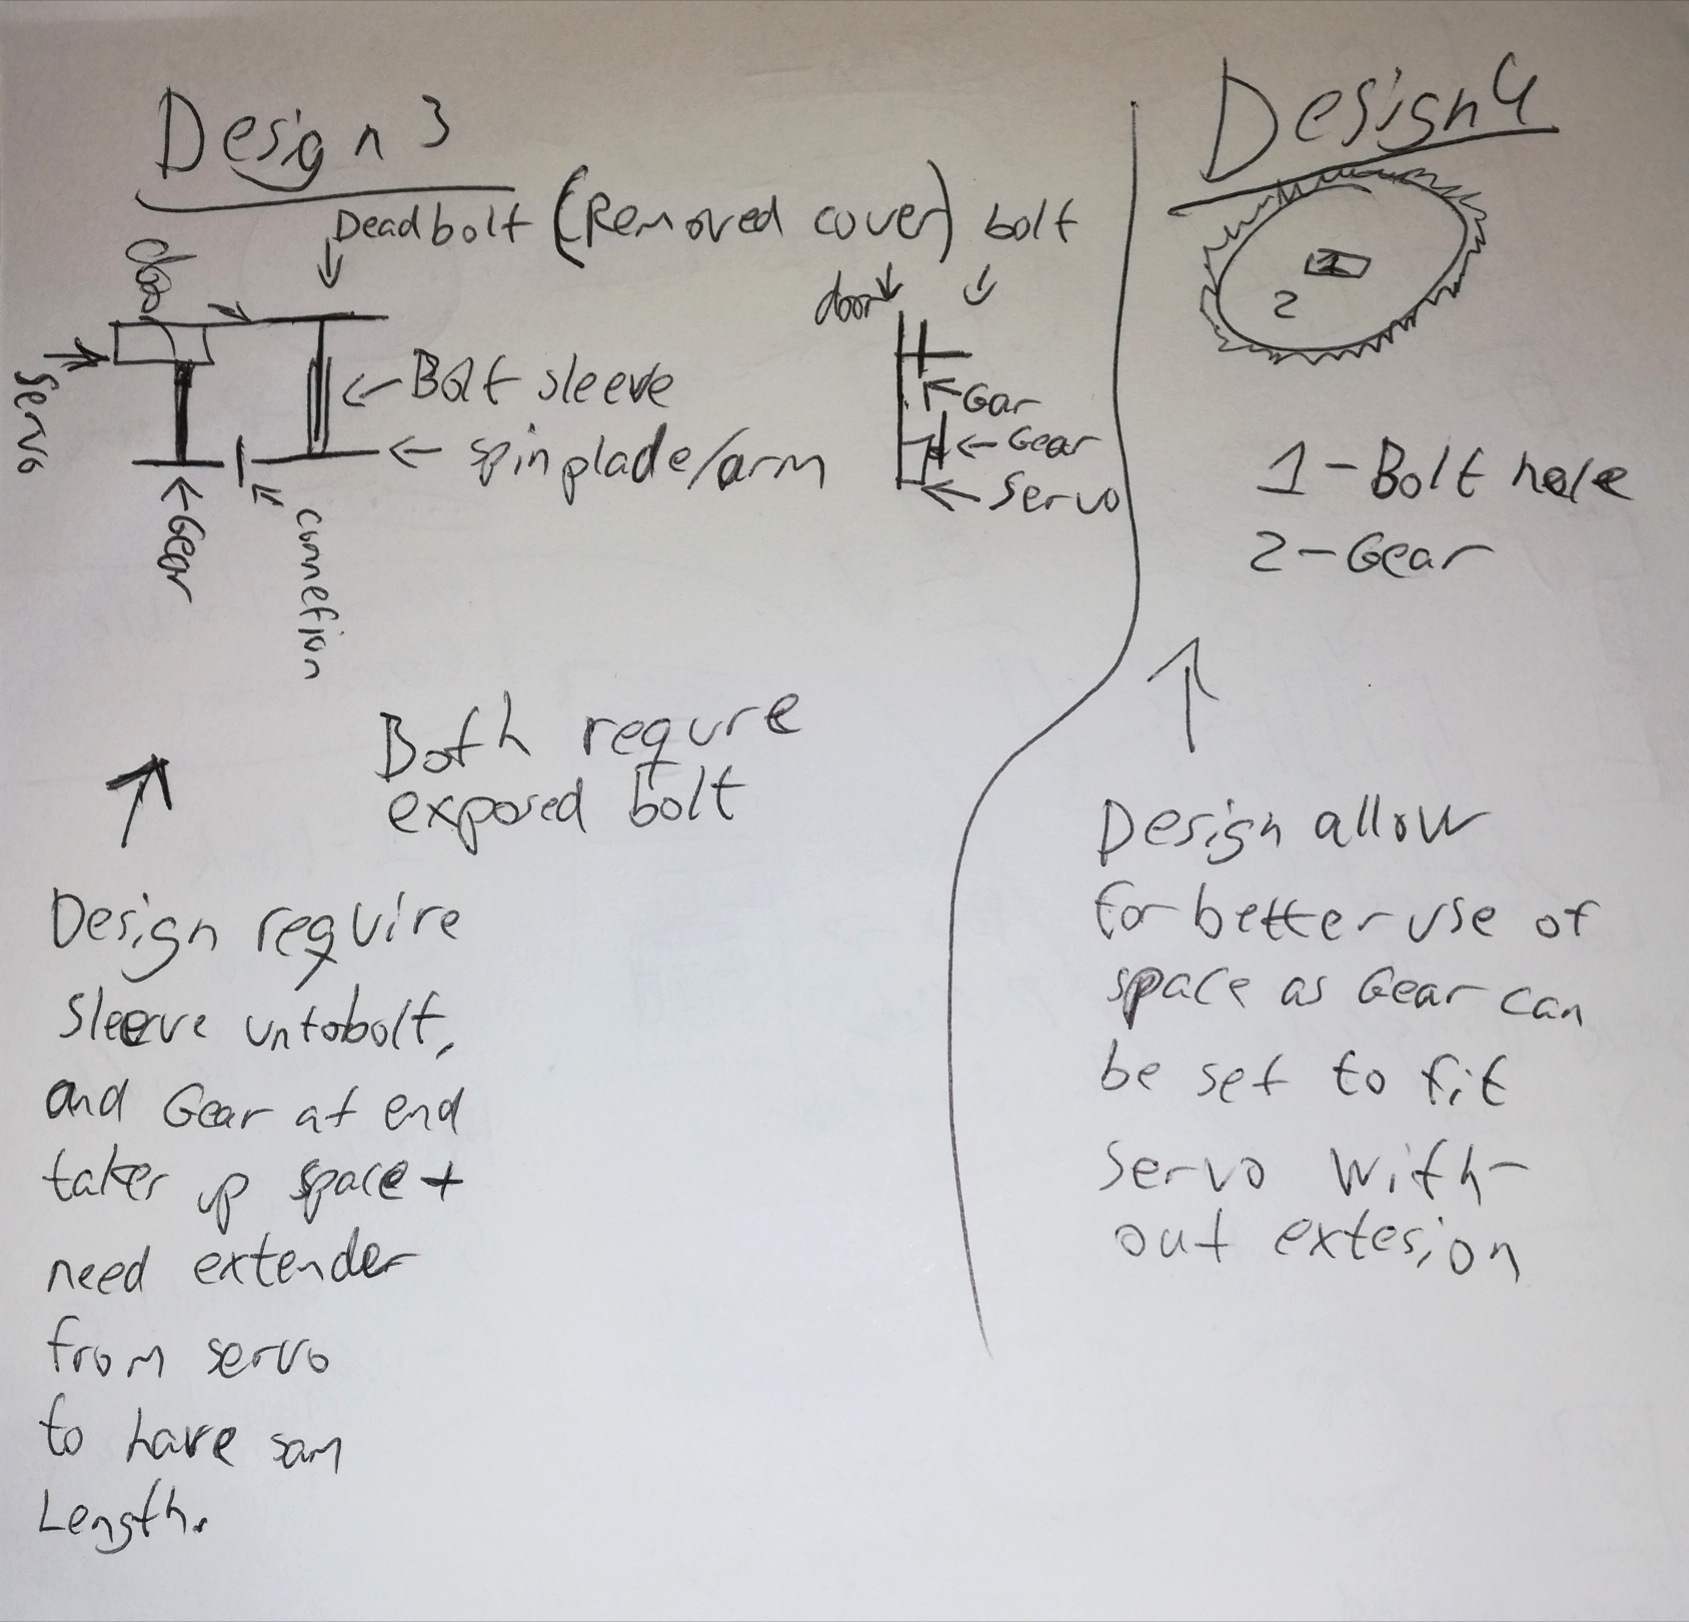 Design 3
Deadbolt (Removed cover) bolt
door
door
Servo
Bolt sleeve
spinplade/arm
Gear
connetion
Gar
Gear
Servo
Both requre
exposed bolt
Design require
sleeve untobolt,
and Gear at end
takes up space +
need extender
from servo
to have sam
Length.
Design 4
1
2
1-Bolt hole
2-Gear
Design allow
for better use of
space as Gear can
be set to fit
servo with-
out extesion